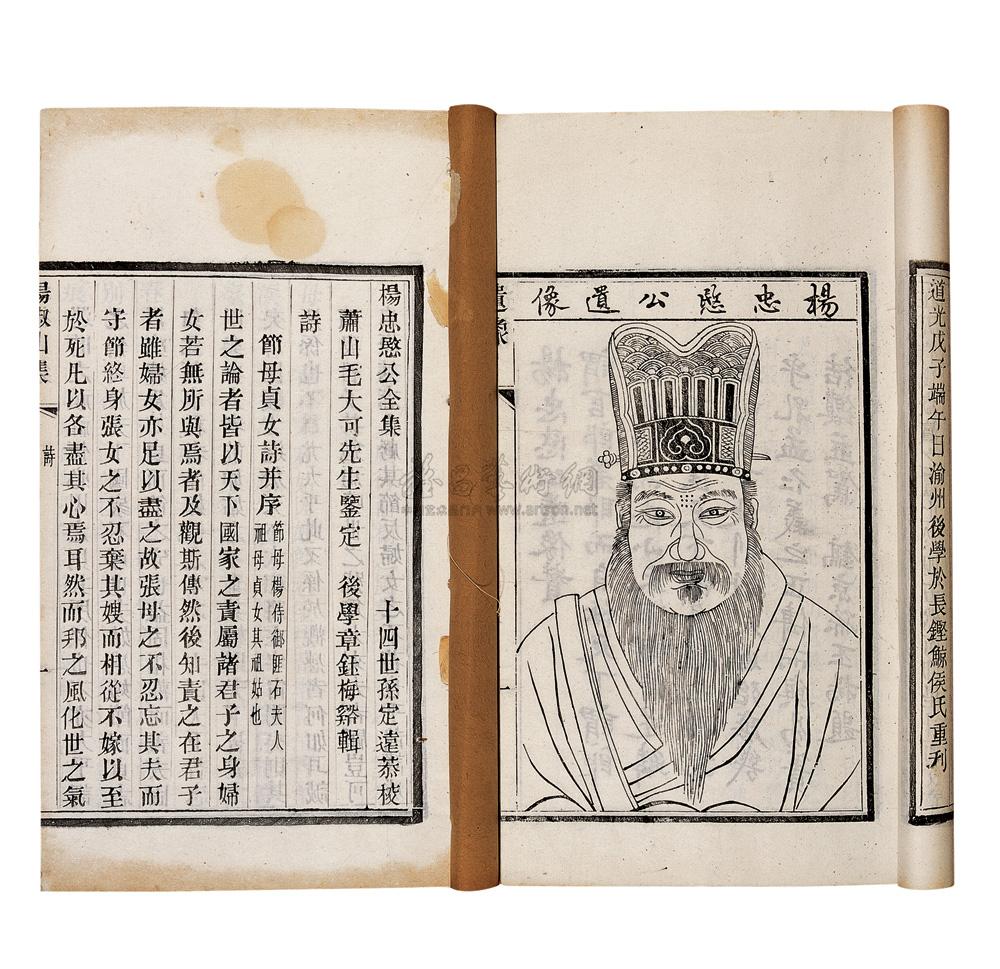 道光戊子端午日渝州後學於長鏗鯨侯氏重刋
楊忠愍公遺像
遺像
楊忠愍公全集
十四世孫定遠恭校
蕭山毛大可先生鑒定
後學章鈺梅谿輯
詩
節母貞女詩并序
節母楊侍御匪石夫人
祖母貞女其祖姑也
世之論者皆以天下國家之責屬諸君子之身婦
女若無所與焉者及觀斯傳然後知責之在君子
者雖婦女亦足以盡之故張母之不忍忘其夫而
守節終身張女之不忍棄其嫂而相從不嫁以至
於死凡以各盡其心焉耳然而邦之風化世之氣
楊椒山集
詩
一
www.artron.net